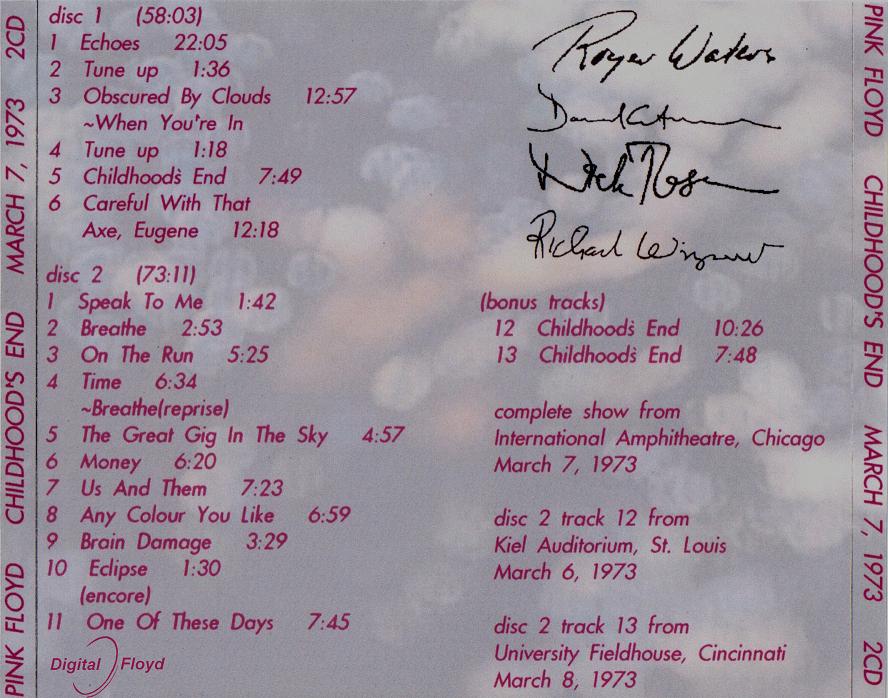 PINK FLOYD CHILDHOOD'S END MARCH 7, 1973 2CD
disc 1 (58:03)
1 Echoes 22:05
2 Tune up 1:36
3 Obscured By Clouds 12:57
~When You're In
4 Tune up 1:18
5 Childhood's End 7:49
6 Careful With That
Axe, Eugene 12:18
disc 2 (73:11)
1 Speak To Me 1:42
2 Breathe 2:53
3 On The Run 5:25
4 Time 6:34
~Breathe(reprise)
5 The Great Gig In The Sky 4:57
6 Money 6:20
7 Us And Them 7:23
8 Any Colour You Like 6:59
9 Brain Damage 3:29
10 Eclipse 1:30
(encore)
11 One Of These Days 7:45
Digital Floyd
Roger Waters
David
Nick
Richard
(bonus tracks)
12 Childhood's End 10:26
13 Childhood's End 7:48
complete show from
International Amphitheatre, Chicago
March 7, 1973
disc 2 track 12 from
Kiel Auditorium, St. Louis
March 6, 1973
disc 2 track 13 from
University Fieldhouse, Cincinnati
March 8, 1973
PINK FLOYD CHILDHOOD'S END MARCH 7, 1973 2CD